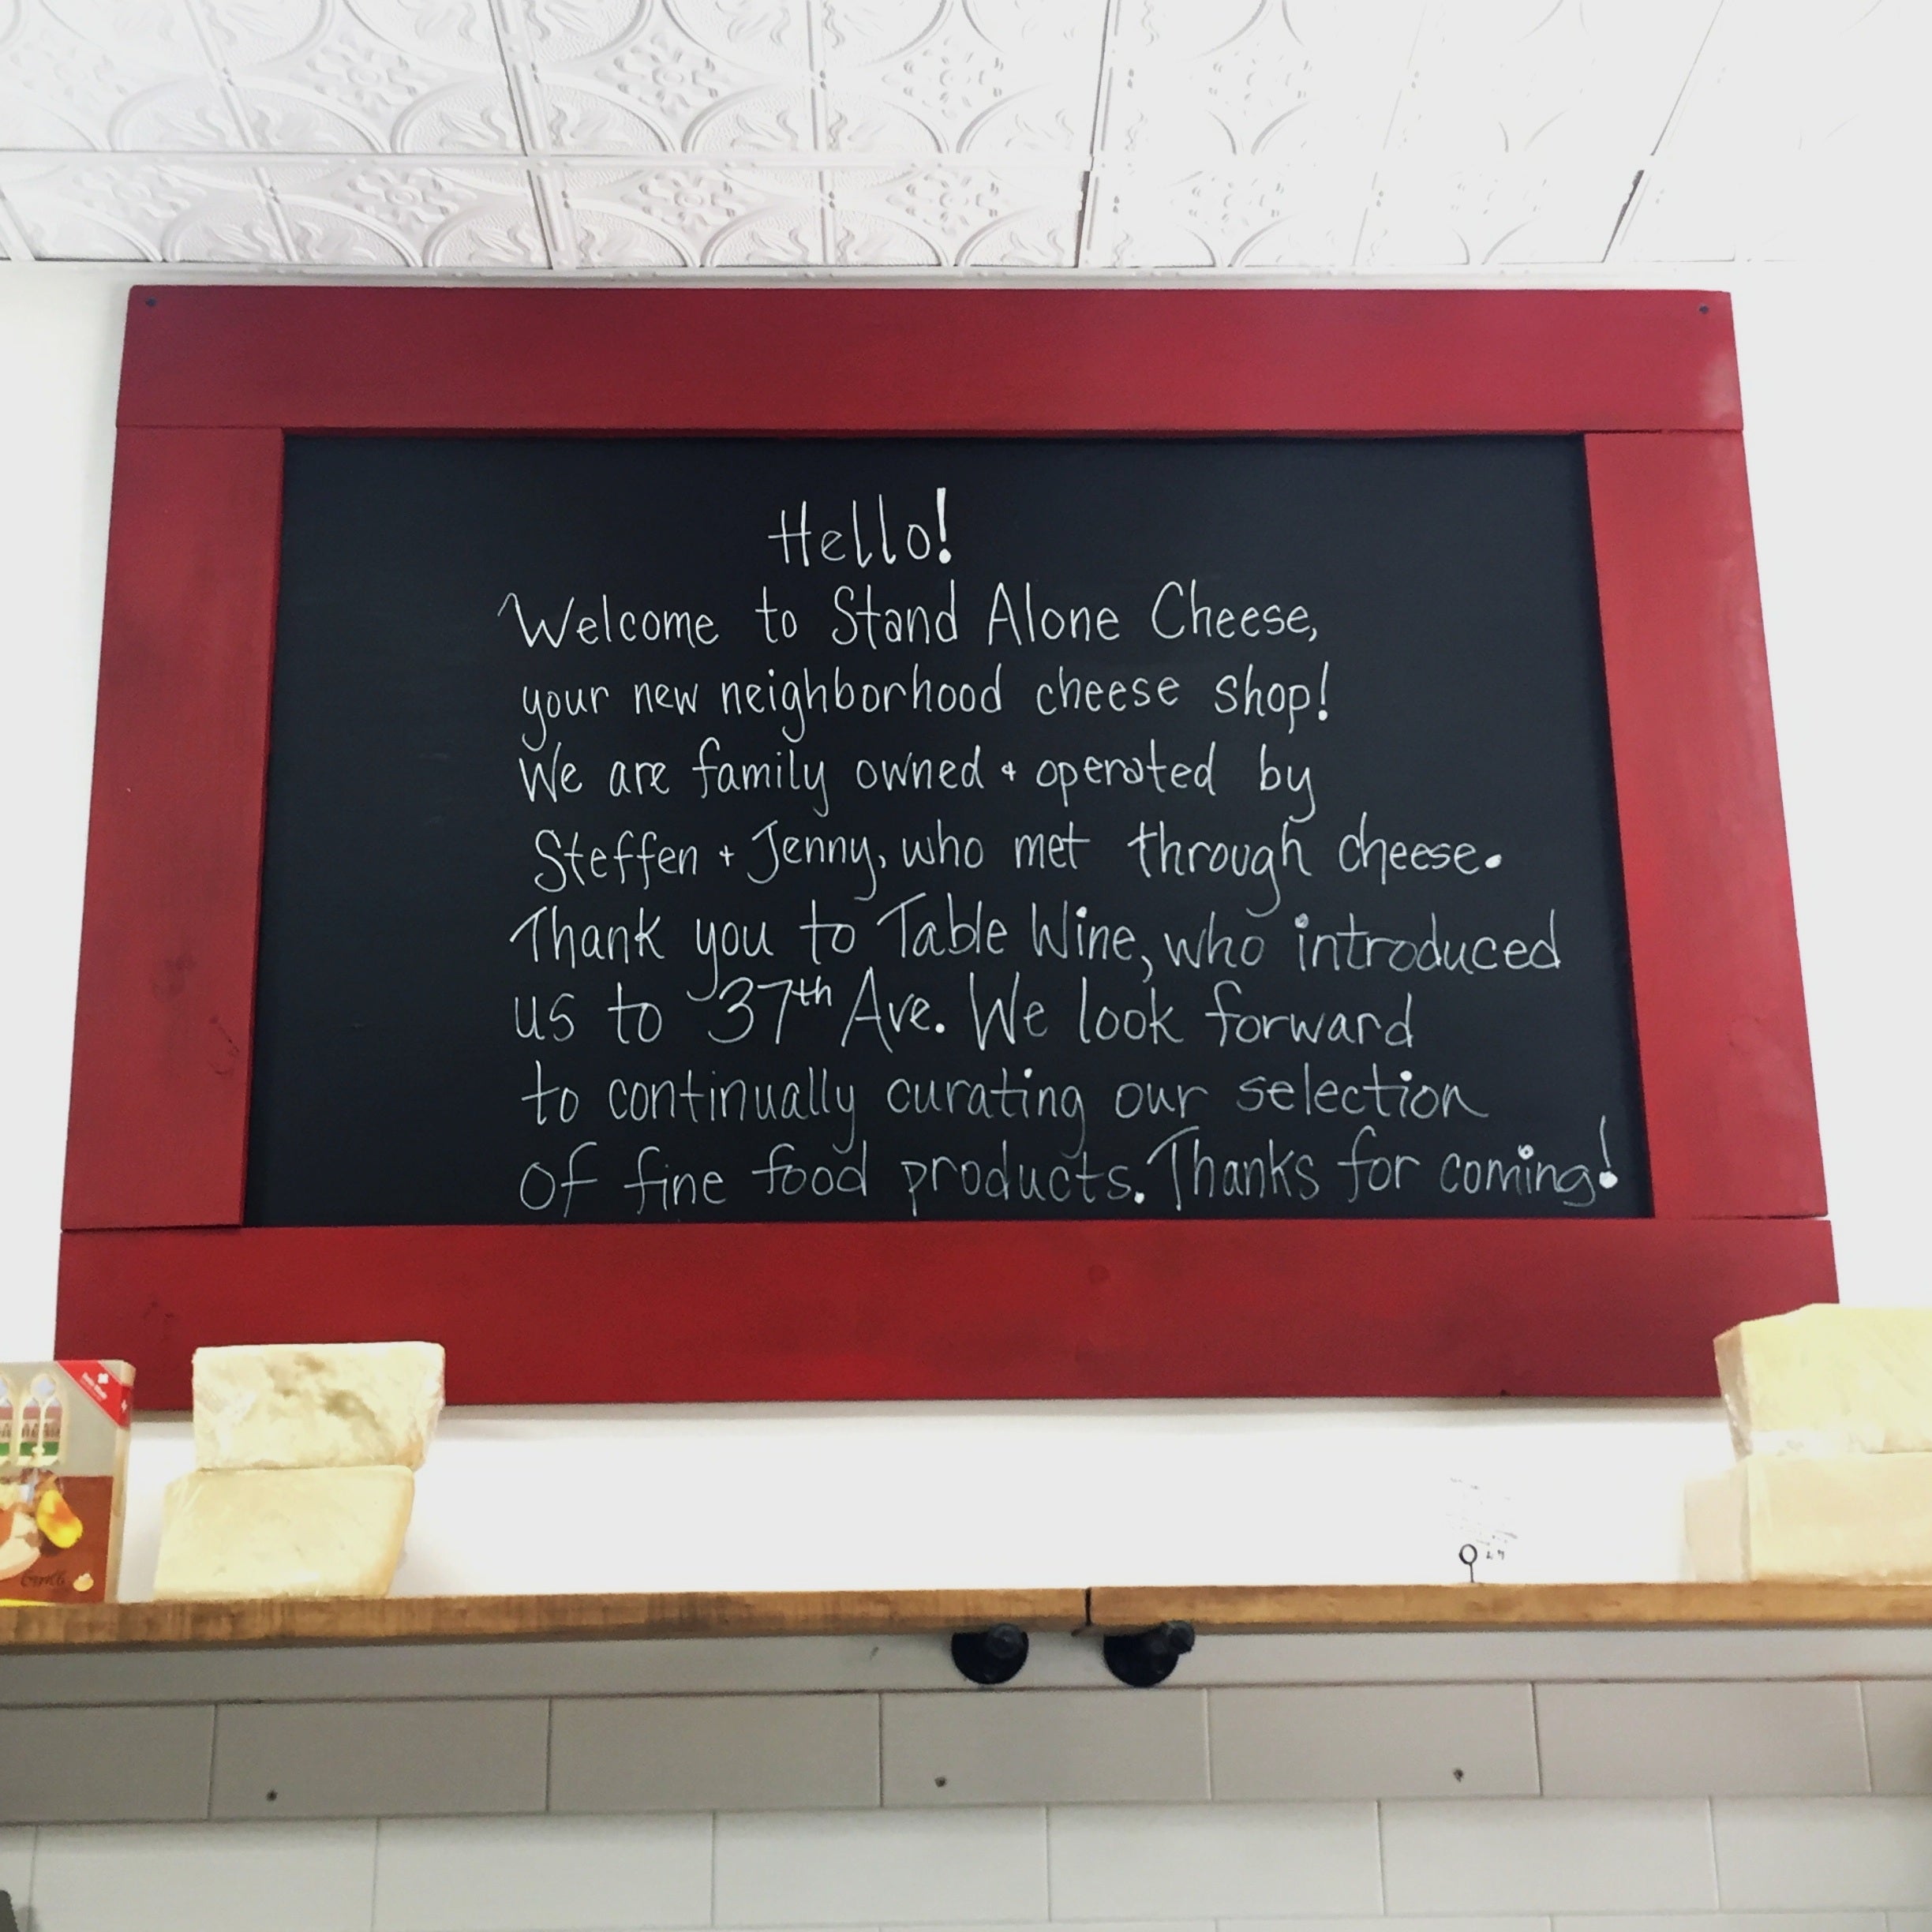 Hello!
Welcome to Stand Alone Cheese,
your new neighborhood cheese shop!
We are family owned + operated by
Steffen + Jenny, who met through cheese.
Thank you to Table Wine, who introduced
us to 37th Ave. We look forward
to continually curating our selection
of fine food products. Thanks for coming!